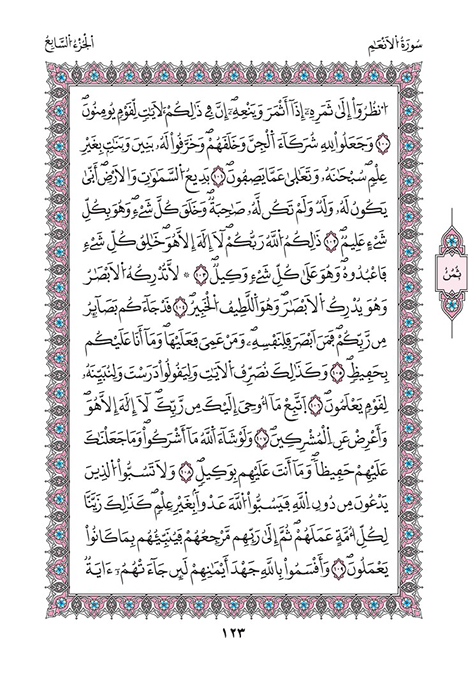 سُورَةُ الأَنْعَامِ
الجُزْءُ السَّابِعُ
اَنظُرُوٓاْ إِلَىٰ ثَمَرِهِۦٓ إِذَآ أَثْمَرَ وَيَنْعِهِۦٓۖ إِنَّ فِے ذَٰلِكُمْ لَأٓيَٰتٖ لِّقَوْمٖ يُومِنُونَۖ
١٠٠ وَجَعَلُواْ لِلهِ شُرَكَآءَ اَ۬لْجِنَّ وَخَلَقَهُمْۖ وَخَرَّقُواْ لَهُۥ بَنِينَ وَبَنَٰتِۢ بِغَيْرِ
عِلْمٖۖ سُبْحَٰنَهُۥ وَتَعَٰلَىٰ عَمَّا يَصِفُونَۖ ١٠١ بَدِيعُ اُ۬لسَّمَٰوَٰتِ وَالَارْضِ أَنَّىٰ
يَكُونُ لَهُۥ وَلَدٞ وَلَمْ تَكُن لَّهُۥ صَٰحِبَةٞۖ وَخَلَقَ كُلَّ شَےْءٖۖ وَهُوَ بِكُلِّ
شَےْءٍ عَلِيمٞۖ ١٠٢ ذَٰلِكُمُ اُ۬للَّهُ رَبُّكُمْۖ لَآ إِلَٰهَ إِلَّا هُوَۖ خَٰلِقُ كُلِّ شَےْءٖ
فَاعْبُدُوهُۖ وَهُوَ عَلَىٰ كُلِّ شَےْءٖ وَكِيلٞۖ ١٠٣ ۞ لَّا تُدْرِكُهُ اُ۬لَابْصَٰرُ
وَهُوَ يُدْرِكُ اُ۬لَابْصَٰرَۖ وَهُوَ اَ۬للَّطِيفُ اُ۬لْخَبِيرُۖ ١٠٤ قَدْ جَآءَكُم بَصَآئِرُ
مِن رَّبِّكُمْۖ فَمَنَ اَبْصَرَ فَلِنَفْسِهِۦۖ وَمَنْ عَمِيَ فَعَلَيْهَاۖ وَمَآ أَنَا عَلَيْكُم
بِحَفِيظٖۖ ١٠٥ وَكَذَٰلِكَ نُصَرِّفُ اُ۬لَايَٰتِ وَلِيَقُولُواْ دَرَسْتَ وَلِنُبَيِّنَهُۥ
لِقَوْمٖ يَعْلَمُونَۖ ١٠٦ اَ۪تَّبِعْ مَآ أُوحِيَ إِلَيْكَ مِن رَّبِّكَۖ لَآ إِلَٰهَ إِلَّا هُوَۖ
وَأَعْرِضْ عَنِ اِ۬لْمُشْرِكِينَۖ ١٠٧ وَلَوْ شَآءَ اَ۬للَّهُ مَآ أَشْرَكُواْۖ وَمَا جَعَلْنَٰكَ
عَلَيْهِمْ حَفِيظاٗۖ وَمَآ أَنتَ عَلَيْهِم بِوَكِيلٖۖ ١٠٨ وَلَا تَسُبُّواْ اُ۬لذِينَ
يَدْعُونَ مِن دُونِ اِ۬للَّهِ فَيَسُبُّواْ اُ۬للَّهَ عَدْواَۢ بِغَيْرِ عِلْمٖۖ كَذَٰلِكَ زَيَّنَّا
لِكُلِّ أُمَّةٍ عَمَلَهُمْۖ ثُمَّ إِلَىٰ رَبِّهِم مَّرْجِعُهُمْ فَيُنَبِّئُهُم بِمَا كَانُواْ
يَعْمَلُونَۖ ١٠٩ وَأَقْسَمُواْ بِاللَّهِ جَهْدَ أَيْمَٰنِهِمْ لَئِن جَآءَتْهُمُۥٓ ءَايَةٞ
ثُمُنُ
١٢٣